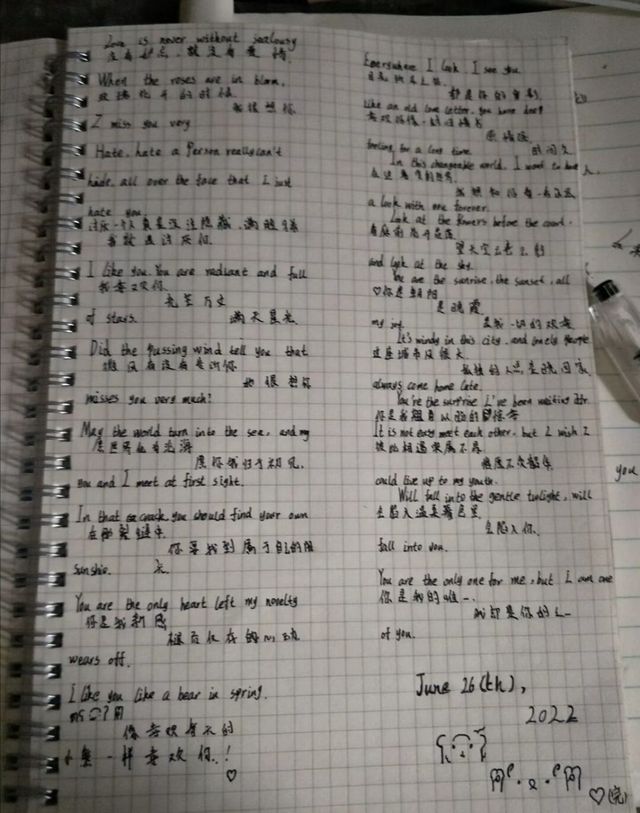 Love is never without jealousy
没有妒忌，就没有爱情。
When the roses are in bloom,
玫瑰花开的时候，
我很想你
I miss you very
Hate, hate a Person really can't
hide, all over the face that I just
hate you.
讨厌一个人真是没法隐藏，满脸写着
我就是讨厌你
I like you. You are radiant and full
我喜欢你
光芒万丈
of stars. 满天星光
Did the passing wind tell you that
她很想你
misses you very much!
May the world turn into the sea, and my
愿你我归于初见
you and I meet at first sight.
In that crack, you should find your own
在那裂缝中
你要找到属于自己的阳
Sunshie. 光
You are the only heart left my novelty
你是我新鲜感
褪去仅存的心动
wears off.
I like you like a bear in spring.
像喜欢春天的
小熊一样喜欢你!
♡
Everywhere I look, I see you
都是你的身影
Like an old love letter, you have been
喜欢你像一封旧情书
时间久
feeling for a long time.
In this changeable world, I want to have
我想和你有一看永远
a look with one forever.
Look at the flowers before the court,
看庭前花开花落
望天空云卷云舒
and look at the sky.
You are the sunrise, the sunset, all
♡你是朝阳
是晚霞
my joy. 是我一切的欢喜
It's windy in this city, and lonely people
这座城市风很大
孤独的人总是晚回家
always come home late.
You're the surprise I've been waiting for.
It is not easy meet each other, but I wish I
彼此相遇实属不易
could live up to my youth.
Will fall into the gentle twilight, will
会陷入温柔暮色里
会陷入你
fall into you.
You are the only one for me, but I am one
你是我的唯一
我却是你的之一
of you.
June 26(th),
2022
♡(完)
you